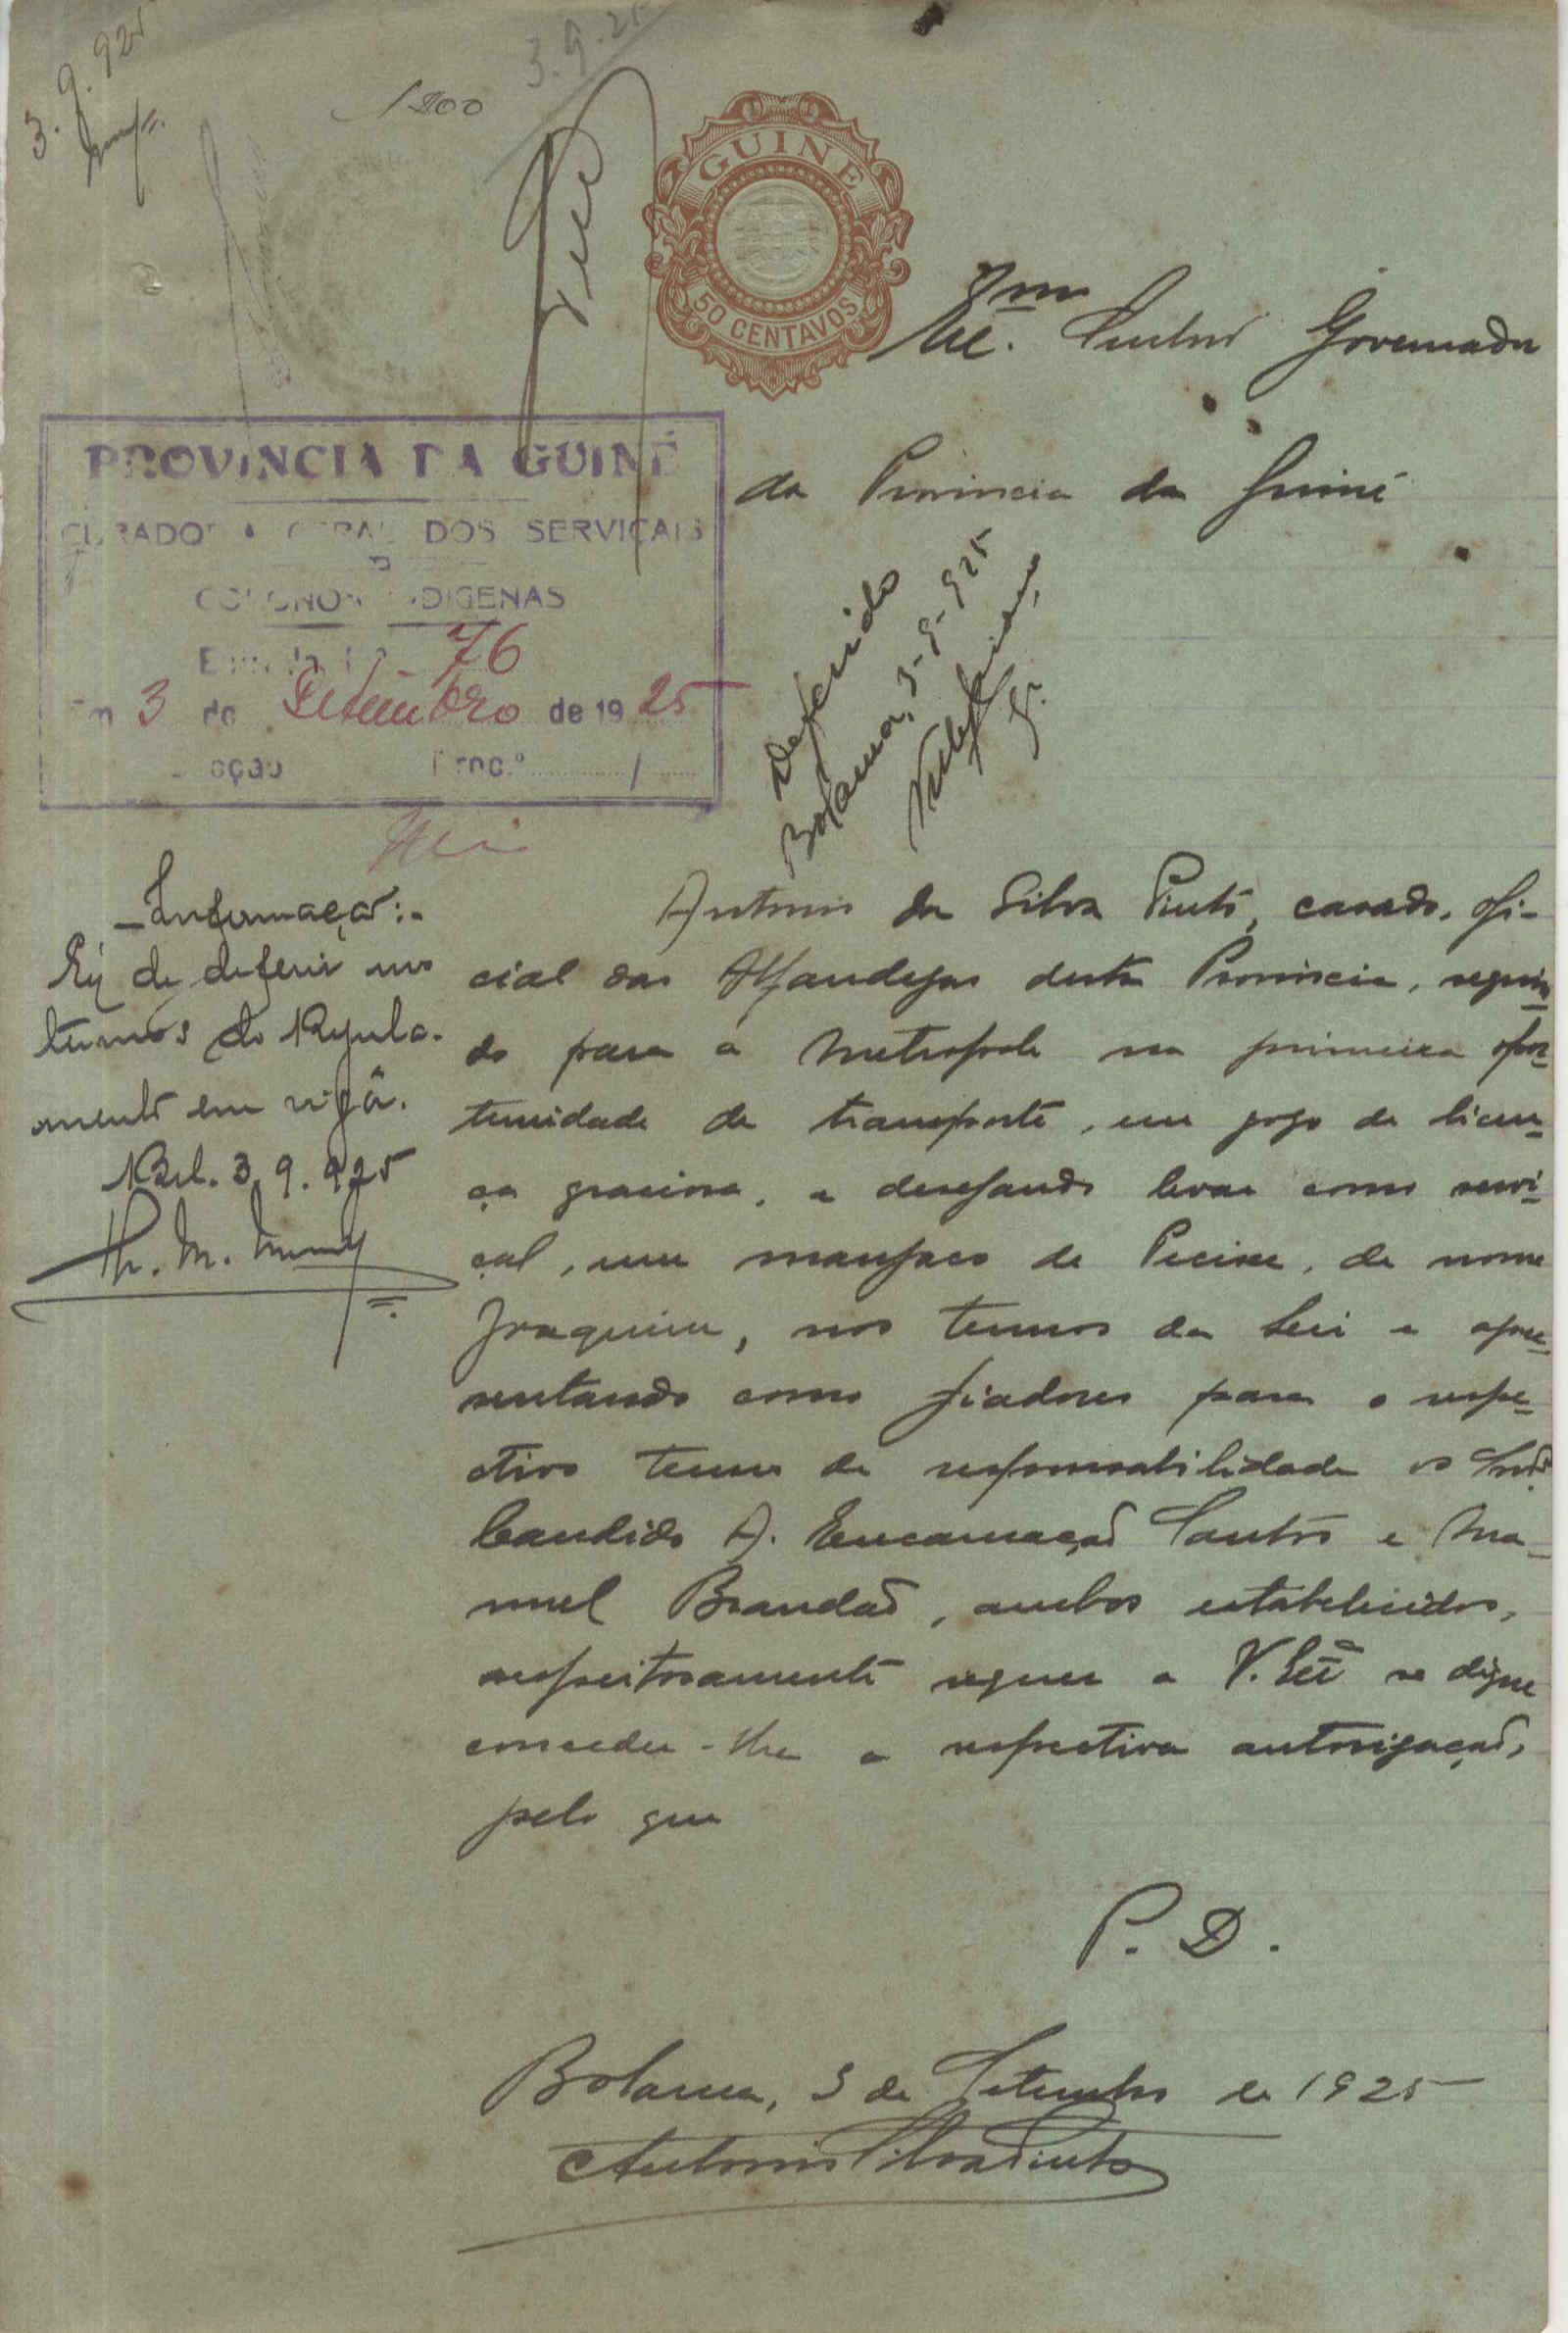 3.9.925
3.9.25
1$00
GUINÉ
50 CENTAVOS
Exmo Senhor Governador
da Provincia da Guiné
PROVINCIA DA GUINÉ
CURADORIA GERAL DOS SERVIÇAIS
E
COLONOS INDIGENAS
Entrada N.º 76
Em 3 de Setembro de 1925
Secção Proc.º /
Deferido
Bolama, 3-9-925
-Informação:-
É de deferir nos
termos do Regula-
mento em vigôr.
Bol. 3.9.925
Antonio da Silva Pinto, casado, ofi-
cial das Alfandegas desta Provincia, seguin-
do para a Metropole na primeira opor-
tunidade de transporte, em gozo de licen-
ça graciosa, e desejando levar como servi-
çal, um manjaco de Pecixe, de nome
Joaquim, nos termos da Lei e apre-
sentando como fiadores para o respe-
ctivo termo de responsabilidade os Snrs
Candido A. Encarnação Santos e Ma-
nuel Brandão, ambos estabelecidos,
respeitosamente requer a V. Exª se digne
conceder-lhe a respectiva autorização,
pelo que
P. D.
Bolama, 3 de Setembro de 1925
Antonio Silva Pinto